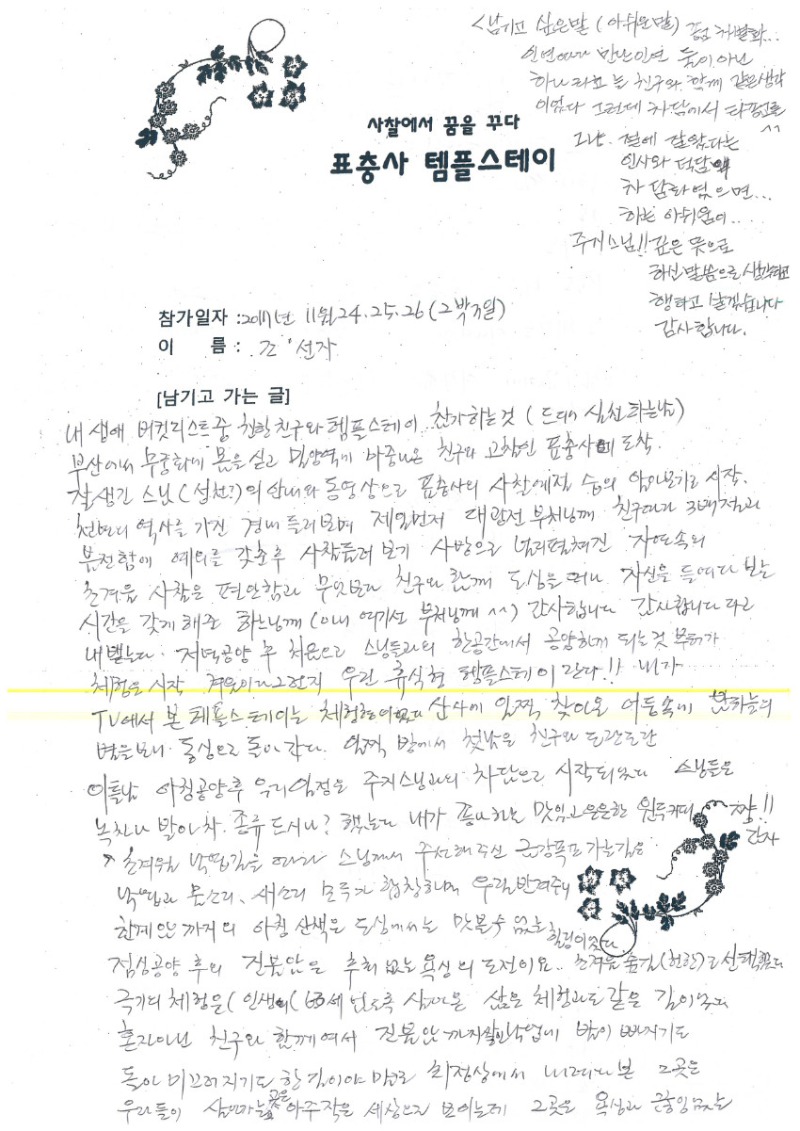 <남기고 싶은말 (아쉬운말)
만난인연 둘이 아닌
하나 라고 는 친구와 함께 같은생각
이었다 그런데 차담에서
^^
사찰에서 꿈을 꾸다
표충사 템플스테이
그냥. 절에 잘왔다는
인사와 덕담
차 담화였으면...
하는 아쉬움이..
주지스님!! 깊은 뜻으로
하신 말씀으로 생각하고
행하고 살겠습니다
감사합니다.
참가일자 :2017년 11월24.25.26 (2박3일)
이 름 : 선자
[남기고 가는 글]
내 생애 버킷리스트중 친한친구와 템플스테이 참가하는것 (드디어 실천하는날)
부산에서 무궁화에 몸을 싣고 밀양역에 마중나온 친구와 고참인 표충사에 도착.
잘생긴 스님 ( )의 안내와 동영상으로 표충사의 사찰예절 알아보기로 시작.
천년의 역사를 가진 경내 둘러보며 제일먼저 대광전 부처님께 친구따라 3배절과
불전함에 예의를 갖춘후 사찰둘러 보기 사방으로 널리펼쳐진 자연속의
초겨울 사찰은 편안함과 무엇보다 친구와 함께 도심을 떠나 자신을 들여다 보는
시간을 갖게 해준 하느님께 (아니 여기선 부처님께 ^^) 감사합니다 감사합니다 라고
내뱉는다. 저녁공양 후 처음으로 스님들과의 한공간에서 공양하게 되는것 부터가
체험은 시작 겨울이라그런지 우린 휴식형 템플스테이 란다!! 내가
TV에서 본 템플스테이는 체험형이었다 산사에 일찍 찾아온 어둠속에 밤하늘의
별을보니 동심으로 돌아 간다. 일찍 방에서 첫날은 친구와 도란도란
이튿날 아침공양후 우리일정은 주지스님과의 차담으로 시작되었다 스님들은
녹차나 발아차. 종류 드시나? 했는데 내가 좋아하는 맛있고 은은한 원두커피 !!
감사
초겨울 낙엽길을 따라 스님께서 추천해주신 금강폭포 가는길은
낙엽과 물소리, 새소리 모두가 합창하며 우릴 반겨주니
한계암 까지의 아침 산책은 도심에서는 맛볼수 없는
힐링이었다.
점심공양 후의 진불암은 후회 없는 욕심의 도전이요.. 초겨울 숲길(험한)로 선택했다
극기의 체험은 (인생의 (63세 되도록 살아온 삶은 체험과도 같은 길이었다
혼자아닌 친구와 함께여서 진불암 까지 쌓인낙엽에 발이 빠지기도
돌이 미끄러지기도 한길이야 말로 최정상에서 내려다 본 그곳은
우리들이 살아가는 곳은 아주작은 세상으로 보이는게 그곳은 욕심과